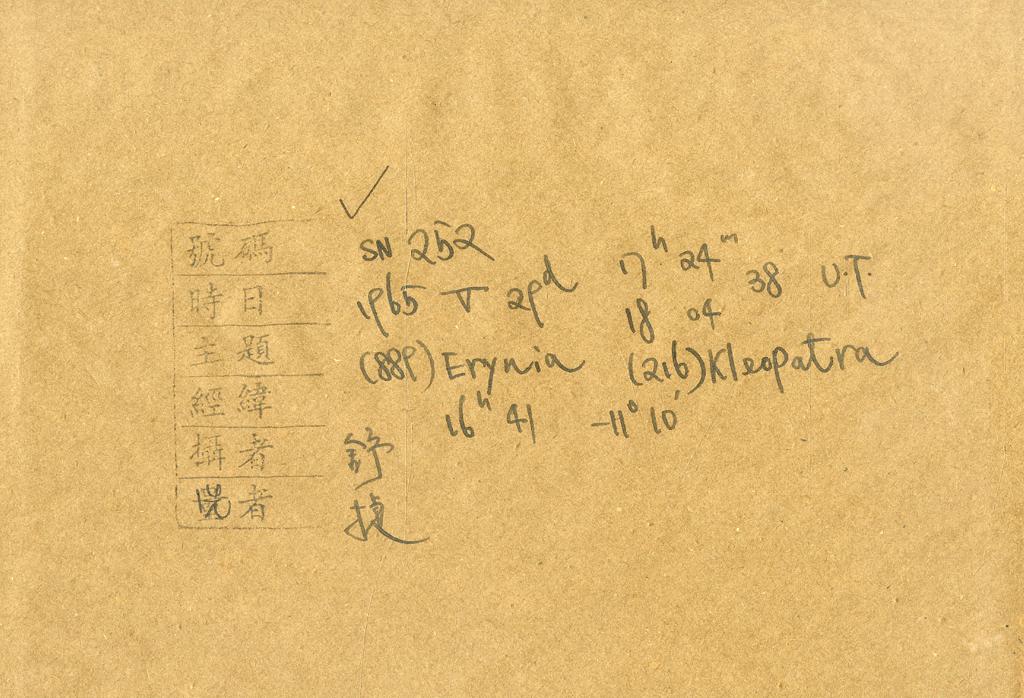 ✓
號碼 SN 252
17ʰ 24ᵐ
時日 1965 V 29ᵈ 38 U.T.
18 04
主題 (889) Erynia (216) Kleopatra
經緯 16ʰ 41 -11° 10′
攝者 舒
者 捷